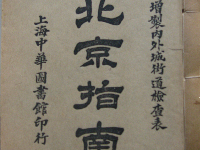 增製內外城街道檢查表
北京指南
上海中華圖書館印行